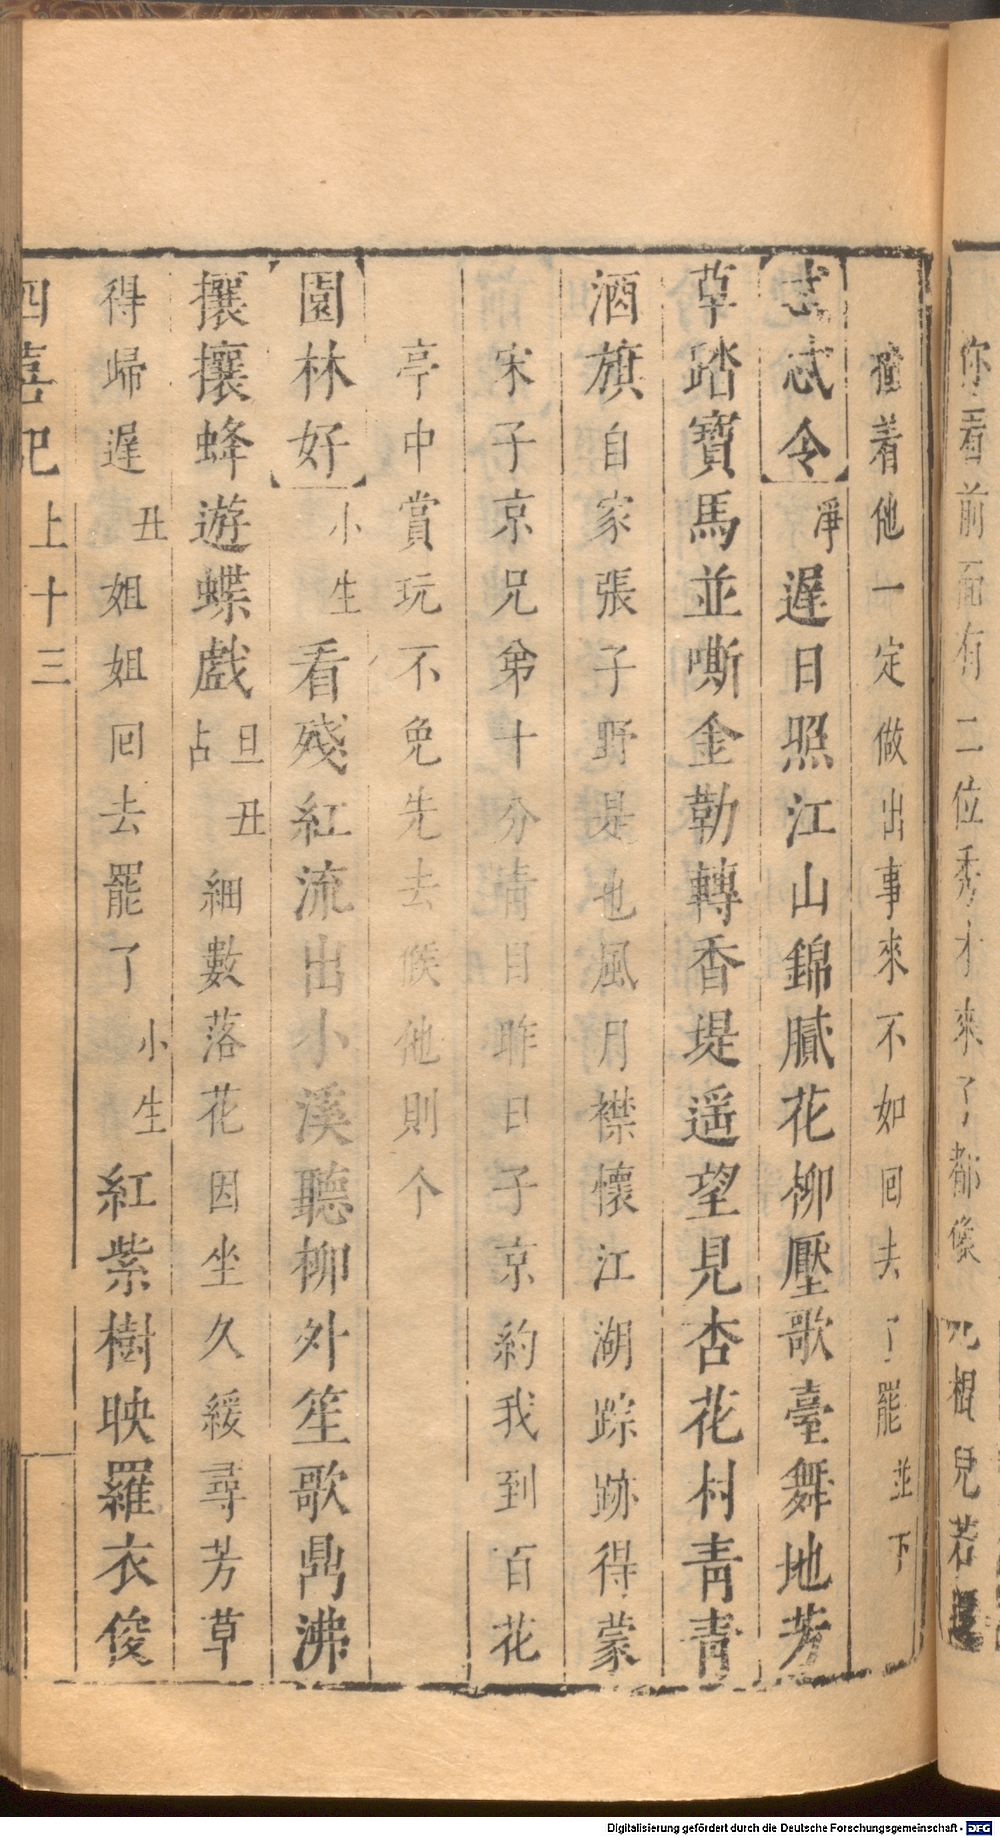 你看前面有二位秀才來了都像
相兒若
撞着他一定做出事來不如回去了罷並下
忒忒令淨遲日照江山錦膩花柳壓歌臺舞地芳
草踏寶馬並嘶金勒轉香堤遥望見杏花村青青
酒旗自家張子野是也風月襟懷江湖踪跡得蒙
宋子京兄弟十分清目昨日子京約我到百花
亭中賞玩不免先去候他則个
園林好小生看殘紅流出小溪聽柳外笙歌鼎沸
攘攘蜂遊蝶戲旦占丑細數落花因坐久緩尋芳草
得歸遲丑姐姐回去罷了小生紅紫樹映羅衣俊
四喜記上十三
Digitalisierung gefördert durch die Deutsche Forschungsgemeinschaft - DFG